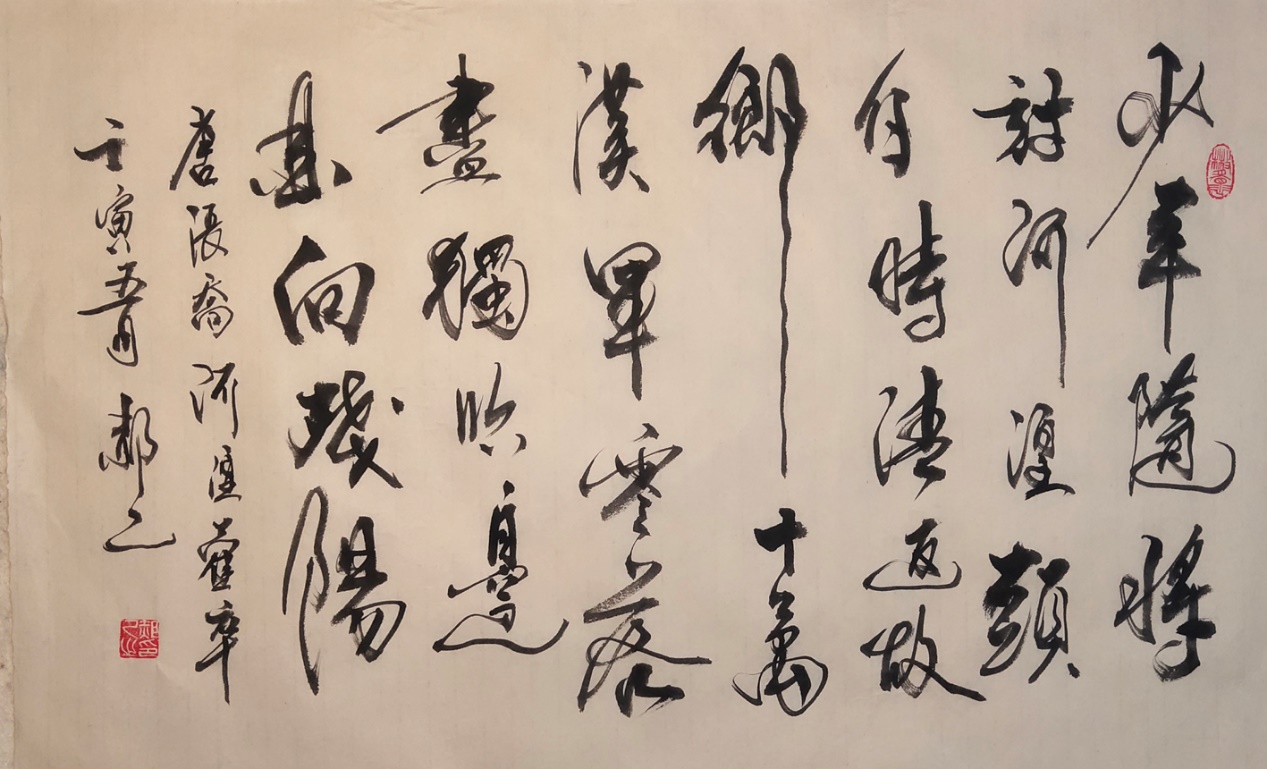 少年隨將
討河湟頭
白時清返故
鄉十萬
漢軍零落
盡獨吹邊
曲向殘陽
唐張喬河湟舊卒
壬寅五月郝之